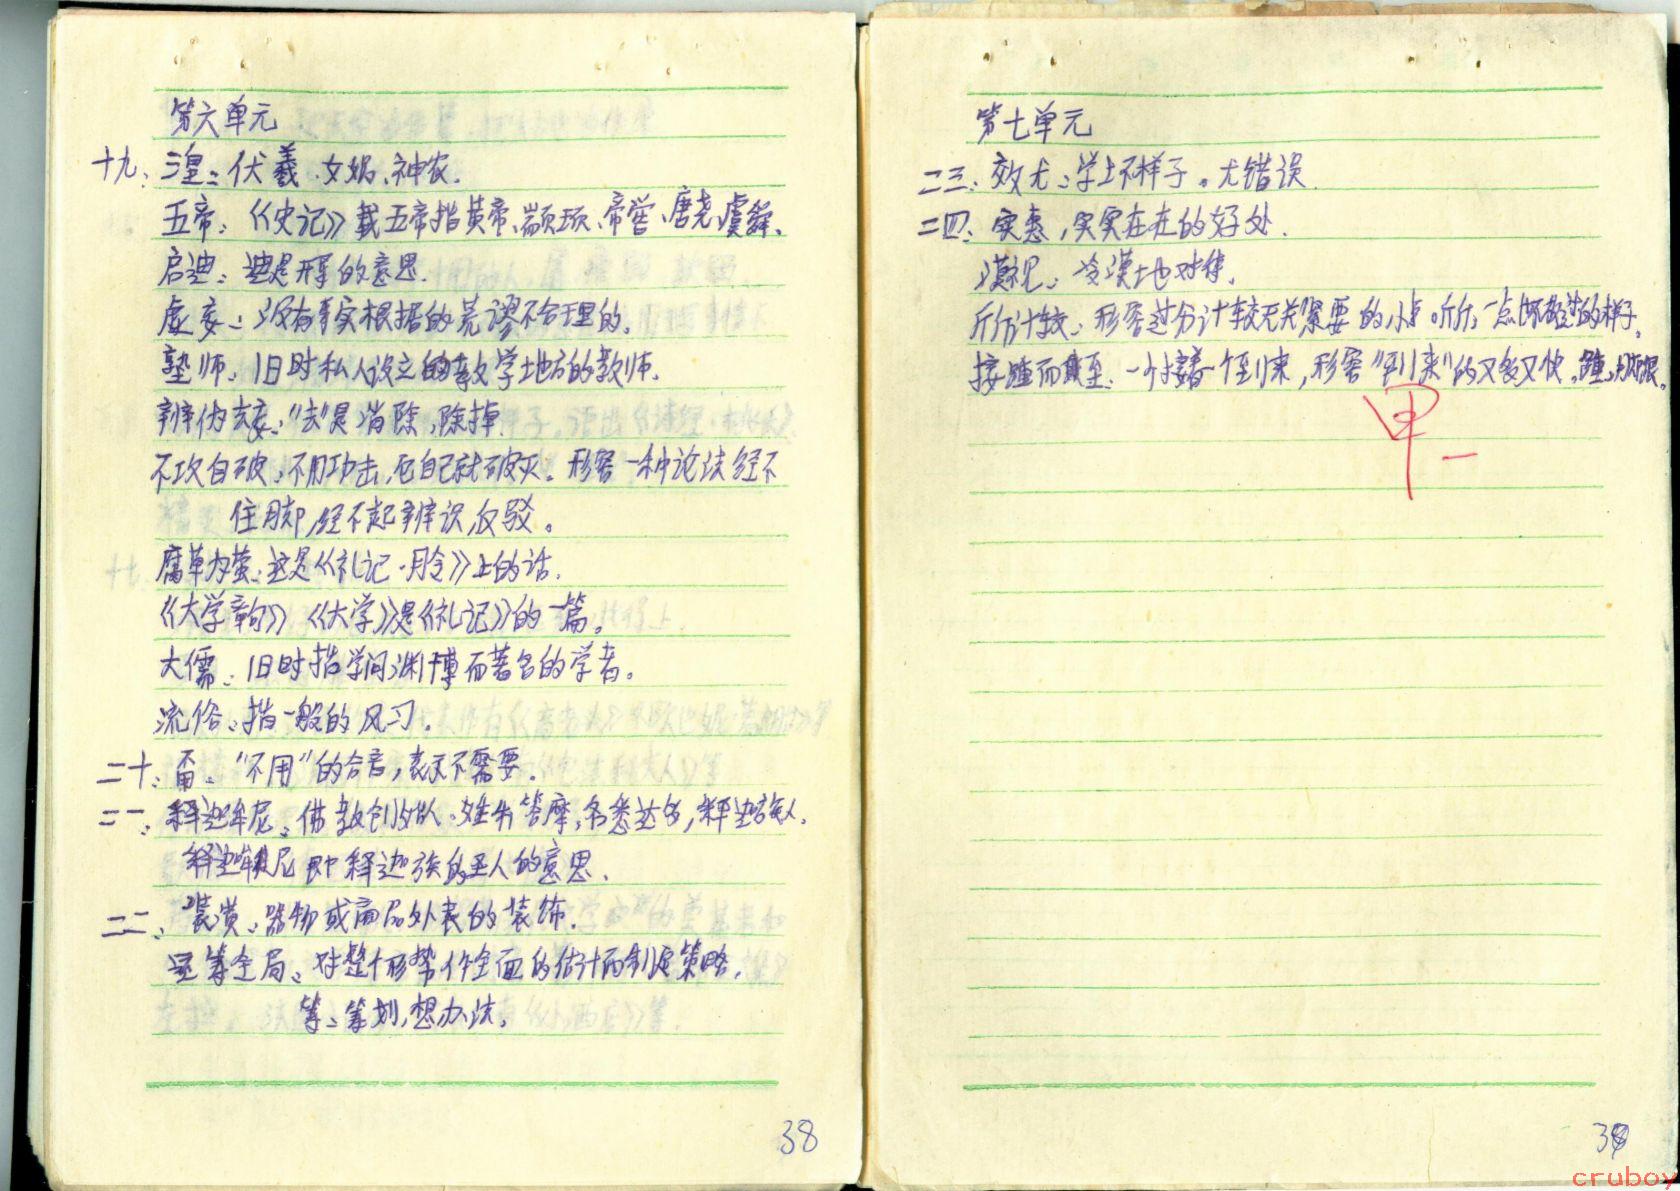 第六单元
十九、三皇：伏羲、女娲、神农.
五帝：《史记》载五帝指黄帝、颛顼、帝喾、唐尧、虞舜.
启迪：迪是开导的意思.
虚妄：没有事实根据的荒谬不合理的.
塾师：旧时私人设立的教学地方的教师.
辨伪去妄："去"是消除,除掉.
不攻自破：不用功击,它自己就破灭。形容一种论法经不
住脚,经不起辨识,反驳。
腐草为萤：这是《礼记·月令》上的话.
《大学章句》《大学》是《礼记》的一篇。
大儒：旧时指学问渊博而著名的学者。
流俗：指一般的风习.
二十、甭："不用"的合音,表示不需要.
二一、释迦牟尼：佛教创始人.姓乔答摩,名悉达多,释迦族人.
释迦牟尼即释迦族的圣人的意思.
二二、装潢：器物或商品外表的装饰.
运筹全局：对整个形势作全面的估计而制定策略.
筹：筹划,想办法.
38
第七单元
二三、效尤：学上不样子。尤错误.
二四、实惠,实实在在的好处.
漠视：冷漠地对待.
斤斤计较：形容过分计较无关紧要的小点.斤斤：一点的样子.
接踵而至：一个接着一个到来,形容"到来"的又多又快.踵：脚跟.
甲-
39
cruboy